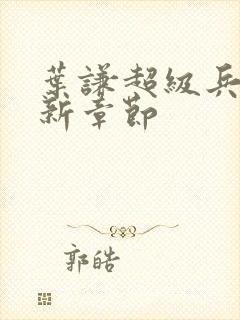 葉謙超級兵
新章節
郭皓